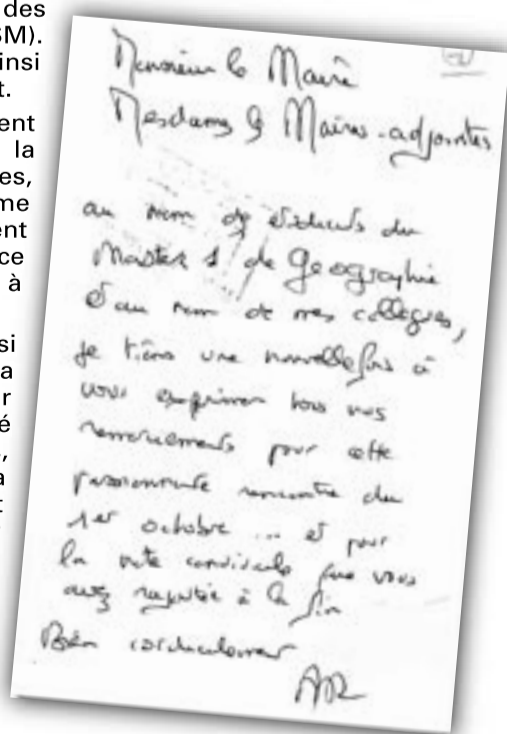 des
SM).
insi
t.
ent
la
es,
me
ent
ce
à
si
a
r
é
,
a
t
Monsieur le Maire
Mesdames les Maires-adjointes
au nom des étudiants du
Master 1 de Géographie
et au nom de mes collègues,
je tiens une nouvelle fois à
vous exprimer tous nos
remerciements pour cette
passionnante rencontre du
1er octobre ... et pour
la note conviviale que vous
avez rajoutée à la fin
Bien cordialement